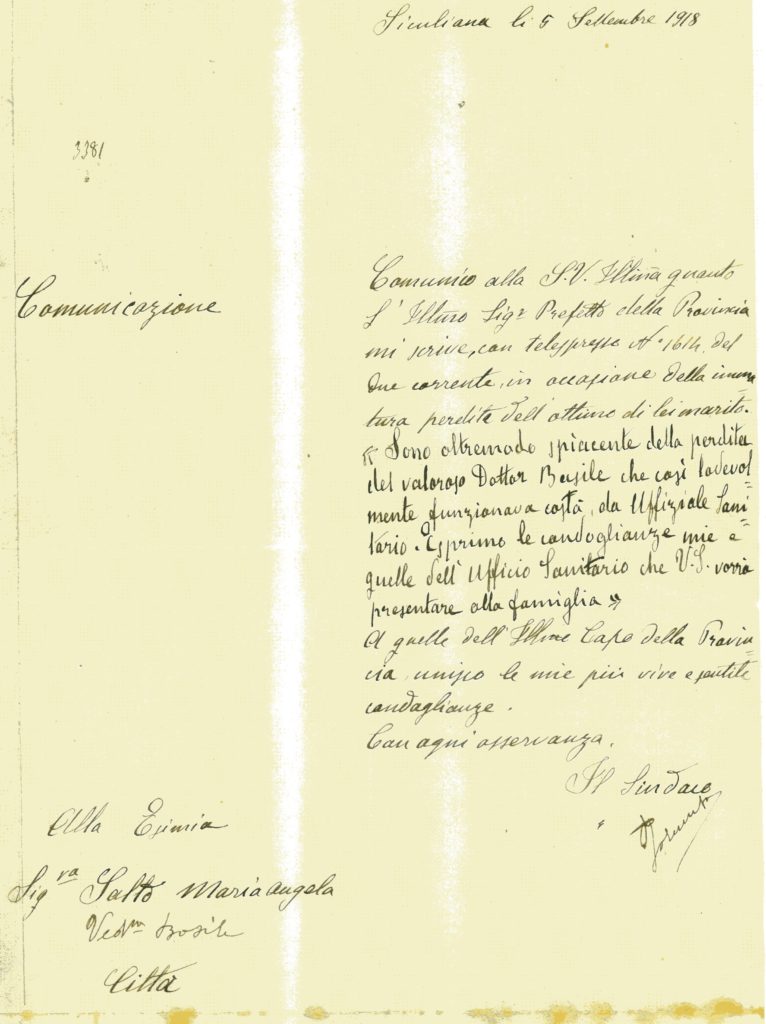 Siculiana li 5 Settembre 1918
3381
Comunicazione
Comunico alla S.V. Illma quanto
l'Illmo Sigr Prefetto della Provincia
mi scrive, con telespresso No 1614, del
due corrente, in occasione della imma=
tura perdita dell'ottimo di lei marito.
« Sono oltremodo spiacente della perdita
del valoroso Dottor Basile che così lodevol=
mente funzionava costà, da Uffiziale Sani=
tario. Esprimo le condoglianze mie e
quelle dell'Ufficio Sanitario che V.S. vorrà
presentare alla famiglia »
A quelle dell'Illmo Capo della Provin=
cia, unisco le mie più vive e sentite
condoglianze.
Con ogni osservanza.
Il Sindaco
Alla Esimia
Sigra Salto Mariangela
Ved. Basile
Città